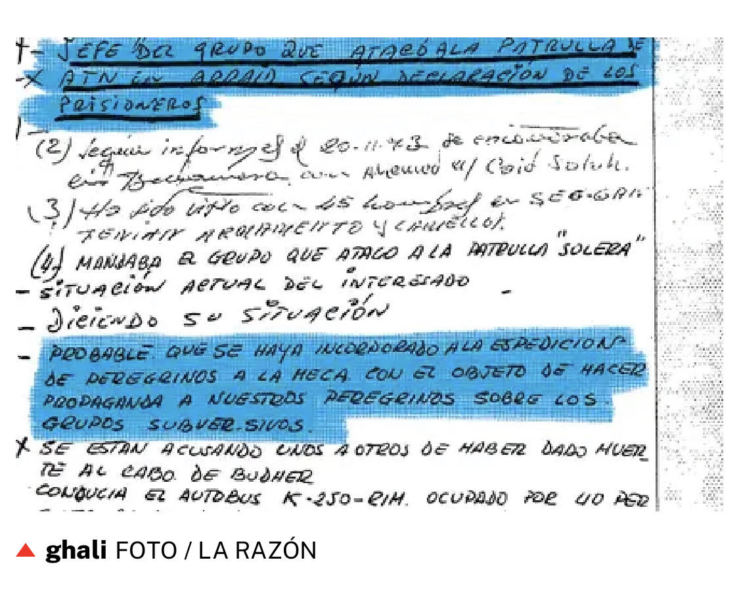 - JEFE DEL GRUPO QUE ATACÓ A LA PATRULLA DE
-X ATN EN ARRAID SEGÚN DECLARACIÓN DE LOS
PRISIONEROS
(2) Según informes el 20-11-73 se encontraba
en con Ahemed u/ Caid Saluh.
(3) Ha sido visto con 45 hombres en SEG-GAR
TENIAN ARMAMENTO Y CAMELLOS.
(4) MANDABA EL GRUPO QUE ATACO A LA PATRULLA "SOLERA"
- SITUACIÓN ACTUAL DEL INTERESADO -
- DICIENDO SU SITUACIÓN
- PROBABLE QUE SE HAYA INCORPORADO A LA ESPEDICION
DE PEREGRINOS A LA MECA CON EL OBJETO DE HACER
PROPAGANDA A NUESTROS PEREGRINOS SOBRE LOS
GRUPOS SUBVERSIVOS.
X SE ESTAN ACUSANDO UNOS A OTROS DE HABER DADO MUER
TE AL CABO DE BUDHER
CONDUCIA EL AUTOBUS K-250-RIM. OCUPADO POR 40 PER
ghali FOTO / LA RAZÓN